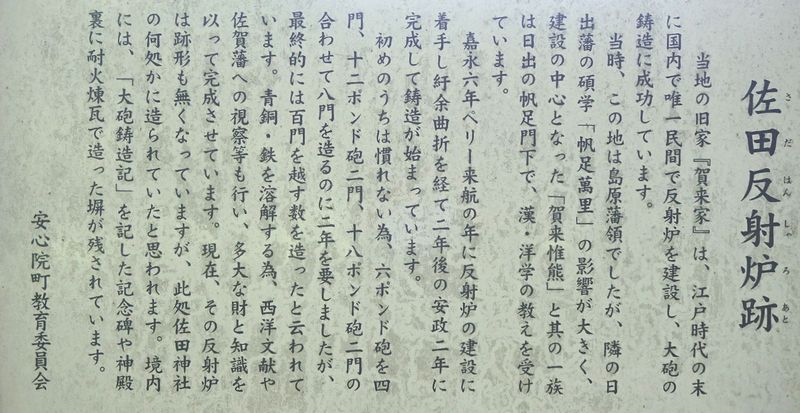 佐田反射炉跡
さだはんしゃろあと
当地の旧家『賀来家』は、江戸時代の末
に国内で唯一民間で反射炉を建設し、大砲の
鋳造に成功しています。
当時、この地は島原藩領でしたが、隣の日
出藩の碩学「帆足萬里」の影響が大きく、
建設の中心となった「賀来惟熊」と其の一族
は日出の帆足門下で、漢・洋学の教えを受け
ています。
嘉永六年ペリー来航の年に反射炉の建設に
着手し紆余曲折を経て二年後の安政二年に
完成して鋳造が始まっています。
初めのうちは慣れない為、六ポンド砲を四
門、十二ポンド砲二門、十八ポンド砲二門の
合わせて八門を造るのに二年を要しましたが、
最終的には百門を越す数を造ったと云われて
います。青銅・鉄を溶解する為、西洋文献や
佐賀藩への視察等も行い、多大な財と知識を
以って完成させています。現在、その反射炉
は跡形も無くなっていますが、此処佐田神社
の何処かに造られていたと思われます。境内
には、「大砲鋳造記」を記した記念碑や神殿
裏に耐火煉瓦で造った塀が残されています。
安心院町教育委員会